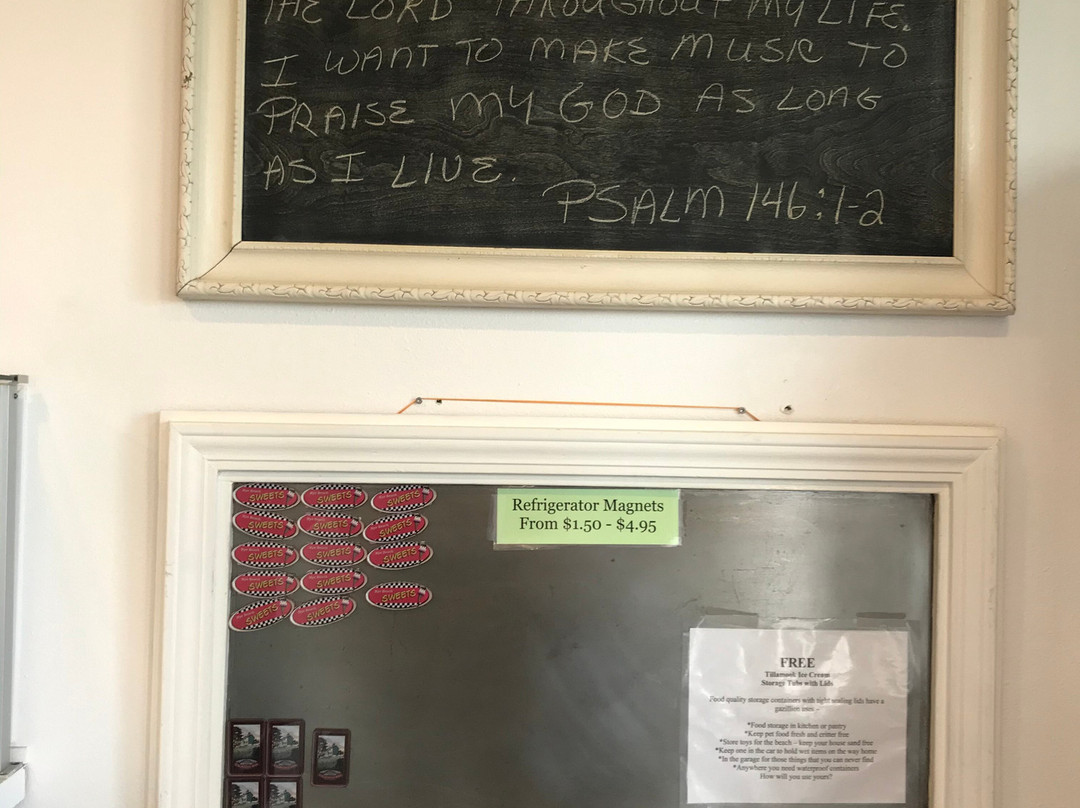 THE LORD THROUGHOUT MY LIFE.
I WANT TO MAKE MUSIC TO
PRAISE MY GOD AS LONG
AS I LIVE.
PSALM 146:1-2
Refrigerator Magnets
From $1.50 - $4.95
SWEETS SWEETS SWEETS
SWEETS SWEETS SWEETS
SWEETS SWEETS SWEETS
SWEETS SWEETS SWEETS
SWEETS SWEETS
FREE
Tillamook Ice Cream
Storage Tubs with Lids
Food quality storage containers with tight sealing lids have a
gazillion uses -
*Food storage in kitchen or pantry
*Keep pet food fresh and critter free
*Store toys for the beach - keep your house sand free
*Keep one in the car to hold wet items on the way home
*In the garage for those things that you can never find
*Anywhere you need waterproof containers
How will you use yours?